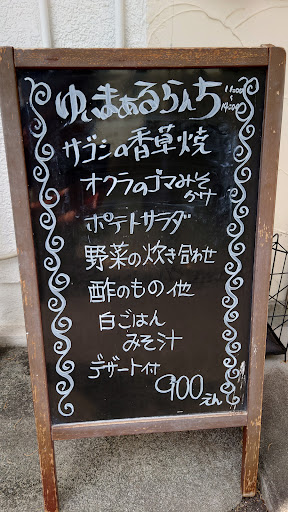 ゆいまぁるらんち 11:00〜14:00
サゴシの香草焼
オクラのゴマみそ
かけ
ポテトサラダ
野菜の炊き合わせ
酢のもの他
白ごはん
みそ汁
デザート付
900えん